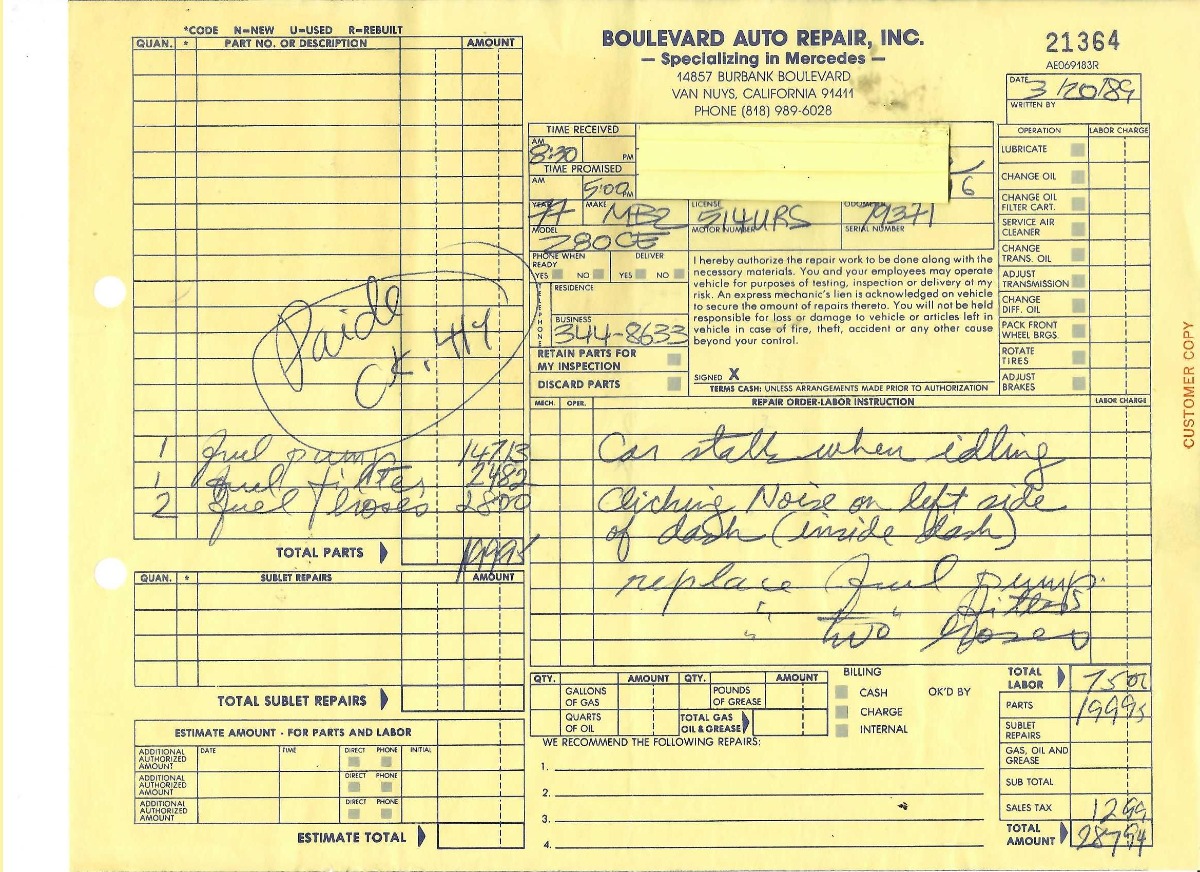 *CODE N=NEW U=USED R=REBUILT
QUAN. * PART NO. OR DESCRIPTION AMOUNT
1 Fuel pump 147 13
1 fuel filter 24 82
2 fuel hoses 28 00
TOTAL PARTS 199 95
Paid
CK.
QUAN. * SUBLET REPAIRS AMOUNT
TOTAL SUBLET REPAIRS
ESTIMATE AMOUNT - FOR PARTS AND LABOR
ADDITIONAL AUTHORIZED AMOUNT DATE TIME DIRECT PHONE INITIAL
ADDITIONAL AUTHORIZED AMOUNT DIRECT PHONE
ADDITIONAL AUTHORIZED AMOUNT DIRECT PHONE
ESTIMATE TOTAL
BOULEVARD AUTO REPAIR, INC.
— Specializing in Mercedes —
14857 BURBANK BOULEVARD
VAN NUYS, CALIFORNIA 91411
PHONE (818) 989-6028
21364
AE069183R
DATE 3/20/89
WRITTEN BY
TIME RECEIVED
AM 8:30 PM
TIME PROMISED
AM 5:00 PM
6
YEAR 77 MAKE MBZ LICENSE 514URS ODOMETER 79371
MODEL 280CE MOTOR NUMBER SERIAL NUMBER
PHONE WHEN READY DELIVER
YES NO YES NO
TELEPHONE
RESIDENCE
BUSINESS
344-8633
RETAIN PARTS FOR
MY INSPECTION
DISCARD PARTS
I hereby authorize the repair work to be done along with the
necessary materials. You and your employees may operate
vehicle for purposes of testing, inspection or delivery at my
risk. An express mechanic's lien is acknowledged on vehicle
to secure the amount of repairs thereto. You will not be held
responsible for loss or damage to vehicle or articles left in
vehicle in case of fire, theft, accident or any other cause
beyond your control.
SIGNED X
TERMS CASH: UNLESS ARRANGEMENTS MADE PRIOR TO AUTHORIZATION
OPERATION LABOR CHARGE
LUBRICATE
CHANGE OIL
CHANGE OIL
FILTER CART.
SERVICE AIR
CLEANER
CHANGE
TRANS. OIL
ADJUST
TRANSMISSION
CHANGE
DIFF. OIL
PACK FRONT
WHEEL BRGS.
ROTATE
TIRES
ADJUST
BRAKES
MECH. OPER. REPAIR ORDER-LABOR INSTRUCTION LABOR CHARGE
Car stalls when idling
Clicking Noise on left side
of dash (inside dash)
replace fuel pump.
" " filters
" two hoses
QTY. AMOUNT QTY. AMOUNT
GALLONS OF GAS POUNDS OF GREASE
QUARTS OF OIL TOTAL GAS OIL & GREASE
BILLING
CASH OK'D BY
CHARGE
INTERNAL
WE RECOMMEND THE FOLLOWING REPAIRS:
1.
2.
3.
4.
TOTAL LABOR 75 00
PARTS 199 95
SUBLET REPAIRS
GAS, OIL AND GREASE
SUB TOTAL
SALES TAX 12 99
TOTAL AMOUNT 287 94
CUSTOMER COPY